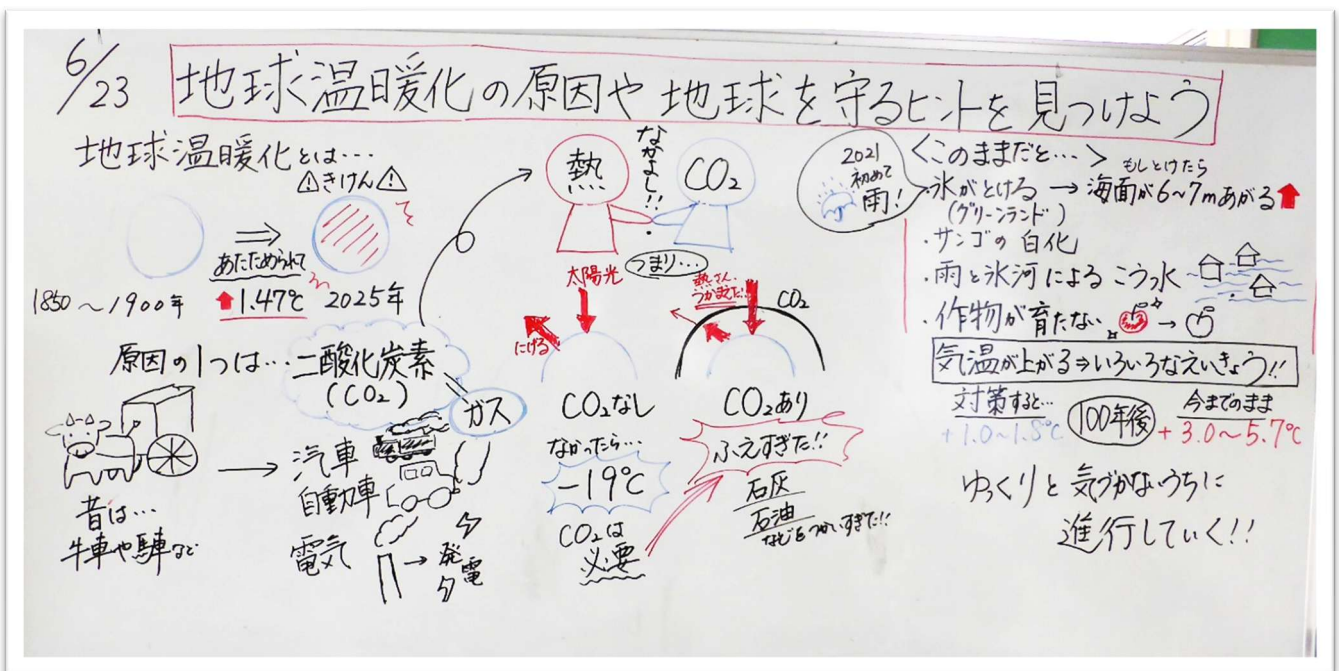 6/23
地球温暖化の原因や地球を守るヒントを見つけよう
地球温暖化とは…
⚠きけん⚠
あたためられて
1850～1900年
⬆1.47℃
2025年
原因の1つは…二酸化炭素
(CO₂)
ガス
昔は…
牛車や馬車など
→
汽車
自動車
電気
→発電
熱
CO₂
なかよし!!
つまり…
太陽光
にげる
CO₂なし
なかったら…
-19℃
CO₂は
必要
熱さん、
つかまえた!!
CO₂
CO₂あり
ふえすぎた!!
石灰
石油
などをつかいすぎた!!
2021
初めて
雨!
<このままだと…>
もしとけたら
・氷がとける→海面が6～7mあがる⬆
(グリーンランド)
・サンゴの白化
・雨と氷河によるこう水
・作物が育たない
→
気温が上がる⇒いろいろなえいきょう!!
対策すると…
+1.0～1.8℃
100年後
今までのまま
+3.0～5.7℃
ゆっくりと気づかないうちに
進行していく!!